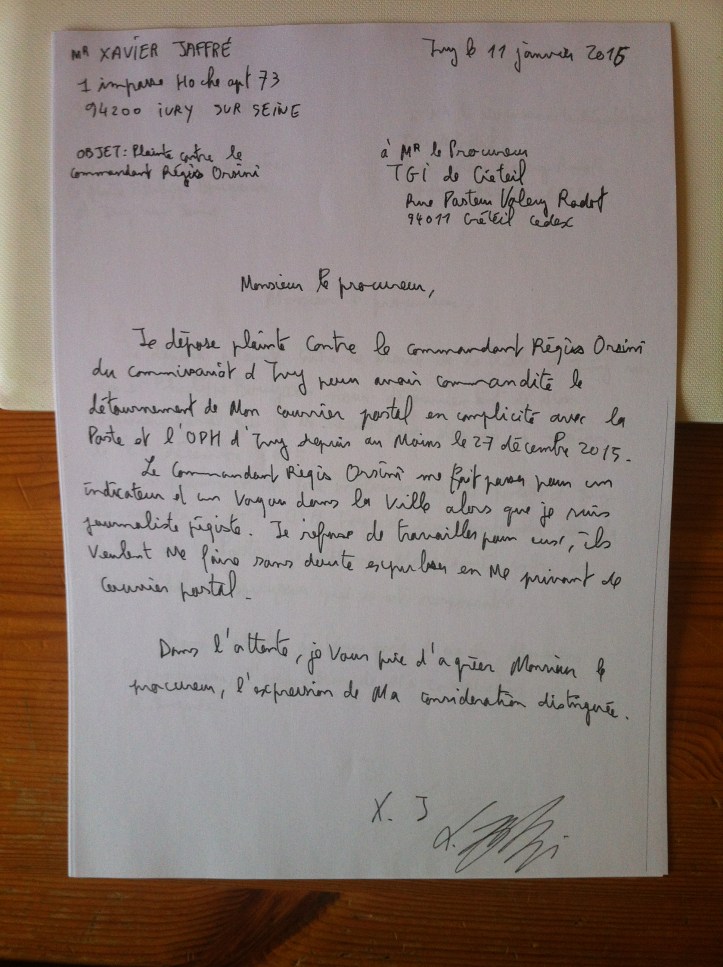 MR XAVIER JAFFRÉ
1 impasse Hoche apt 73
94200 IVRY SUR SEINE
Ivry le 11 janvier 2016
OBJET: Plainte contre le
commandant Régis Orsini
à MR le Procureur
TGI de Créteil
Rue Pasteur Valery Radot
94011 Créteil cedex
Monsieur le procureur,
Je dépose plainte contre le commandant Régis Orsini
du commissariat d'Ivry pour avoir commandité le
détournement de mon courrier postal en complicité avec la
Poste et l'OPH d'Ivry depuis au moins le 27 décembre 2015.
Le Commandant Régis Orsini me fait passer pour un
indicateur et un voyou dans la ville alors que je suis
journaliste pigiste. Je refuse de travailler pour eux, ils
veulent me faire sans doute expulser en me privant de
courrier postal.
Dans l'attente, je vous prie d'agréer Monsieur le
procureur, l'expression de ma considération distinguée.
X. J